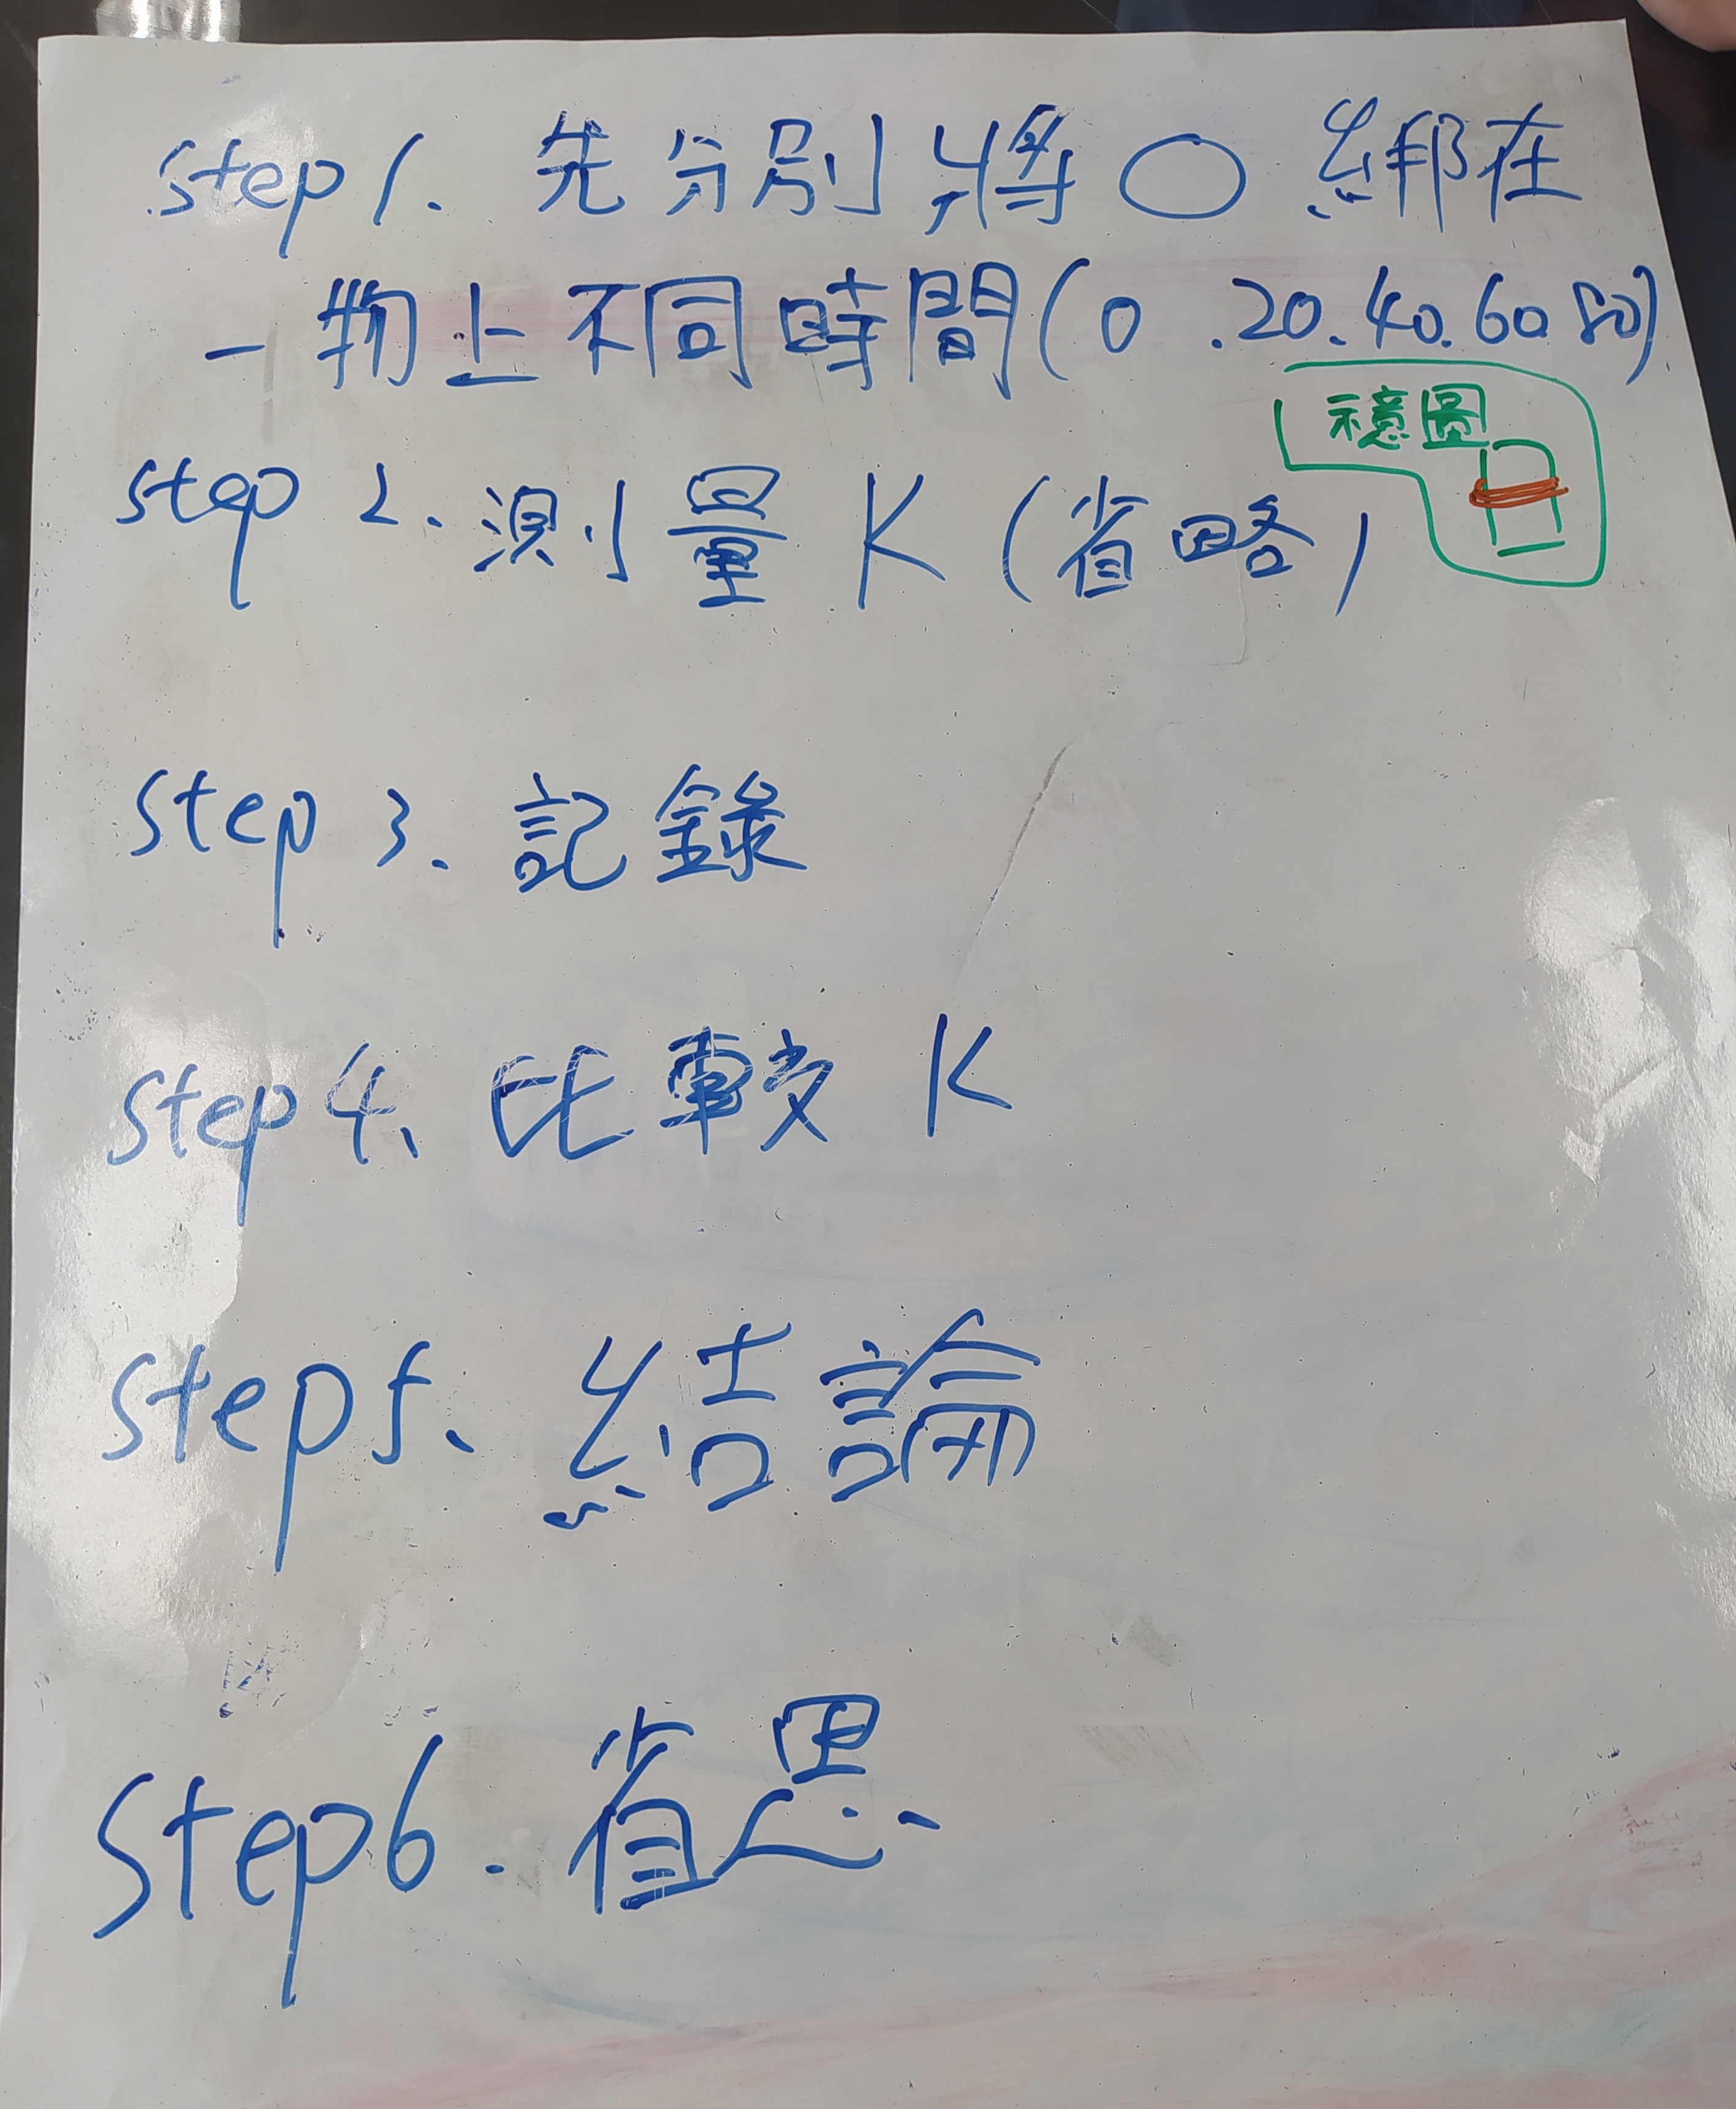 step 1. 先分別將○綁在
一物上不同時間(0.20.40.60.80)
示意圖
step 2. 測量K(省略)
step 3. 記錄
step 4、比較K
step5、結論
step6. 省思